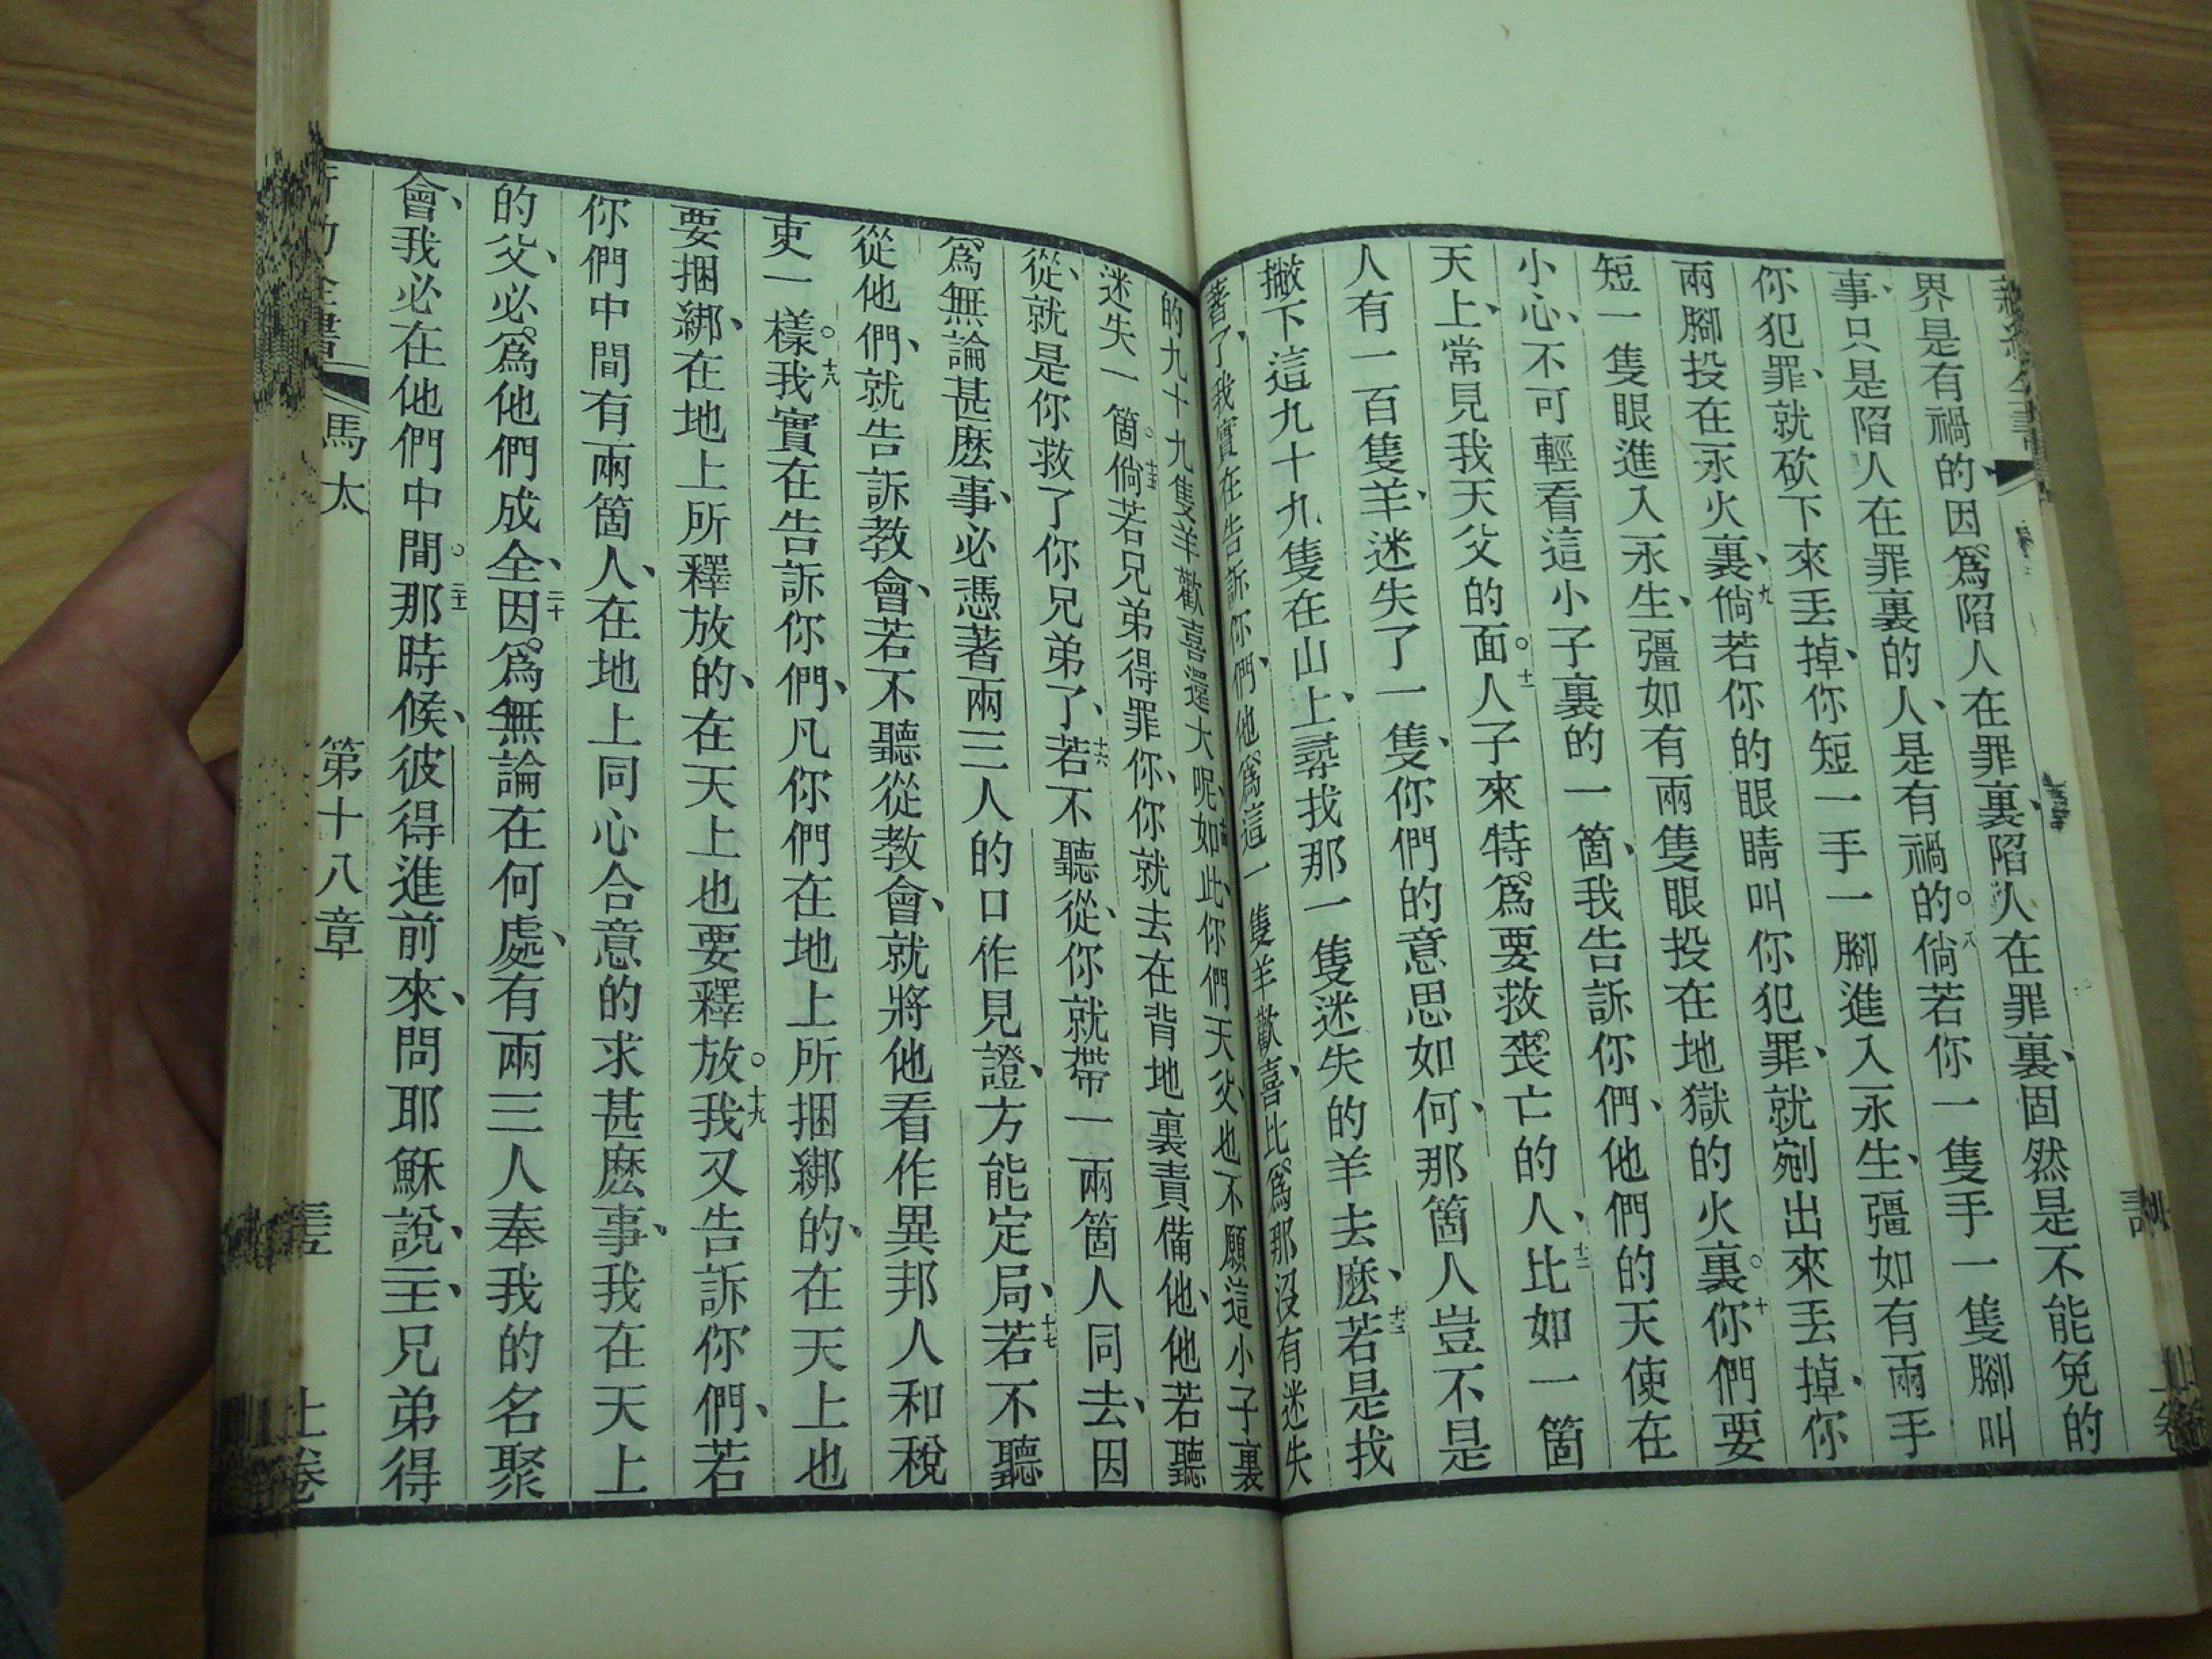 界是有禍的、因爲陷人在罪裏、陷人在罪裏、固然是不能免的
事、只是陷人在罪裏的人、是有禍的。八倘若你一隻手一隻腳叫
你犯罪、就砍下來丟掉、你短一手一腳進入永生、彊如有兩手
兩腳投在永火裏、九倘若你的眼睛叫你犯罪、就剜出來丟掉、你
短一隻眼進入永生、彊如有兩隻眼投在地獄的火裏。十你們要
小心、不可輕看這小子裏的一箇、我告訴你們、他們的天使在
天上、常見我天父的面。十一人子來特爲要救喪亡的人、十二比如一箇
人有一百隻羊、迷失了一隻、你們的意思如何、那箇人豈不是
撇下這九十九隻在山上、尋找那一隻迷失的羊去麽、十三若是找
著了、我實在告訴你們、他爲這一隻羊歡喜、比爲那沒有迷失
的九十九隻羊歡喜還大呢、十四如此、你們天父也不願這小子裏
迷失一箇。十五倘若兄弟得罪你、你就去在背地裏責備他、他若聽
從、就是你救了你兄弟了、十六若不聽從、你就帶一兩箇人同去、因
爲無論甚麽事、必憑著兩三人的口作見證、方能定局、十七若不聽
從他們、就告訴教會、若不聽從教會、就將他看作異邦人和稅
吏一樣。十八我實在告訴你們、凡你們在地上所捆綁的、在天上也
要捆綁、在地上所釋放的、在天上也要釋放。十九我又告訴你們、若
你們中間有兩箇人、在地上同心合意的求甚麽事、我在天上
的父、必爲他們成全、二十因爲無論在何處、有兩三人奉我的名聚
會、我必在他們中間。二十一那時候、彼得進前來、問耶穌說、主、兄弟得
馬太 第十八章 上卷